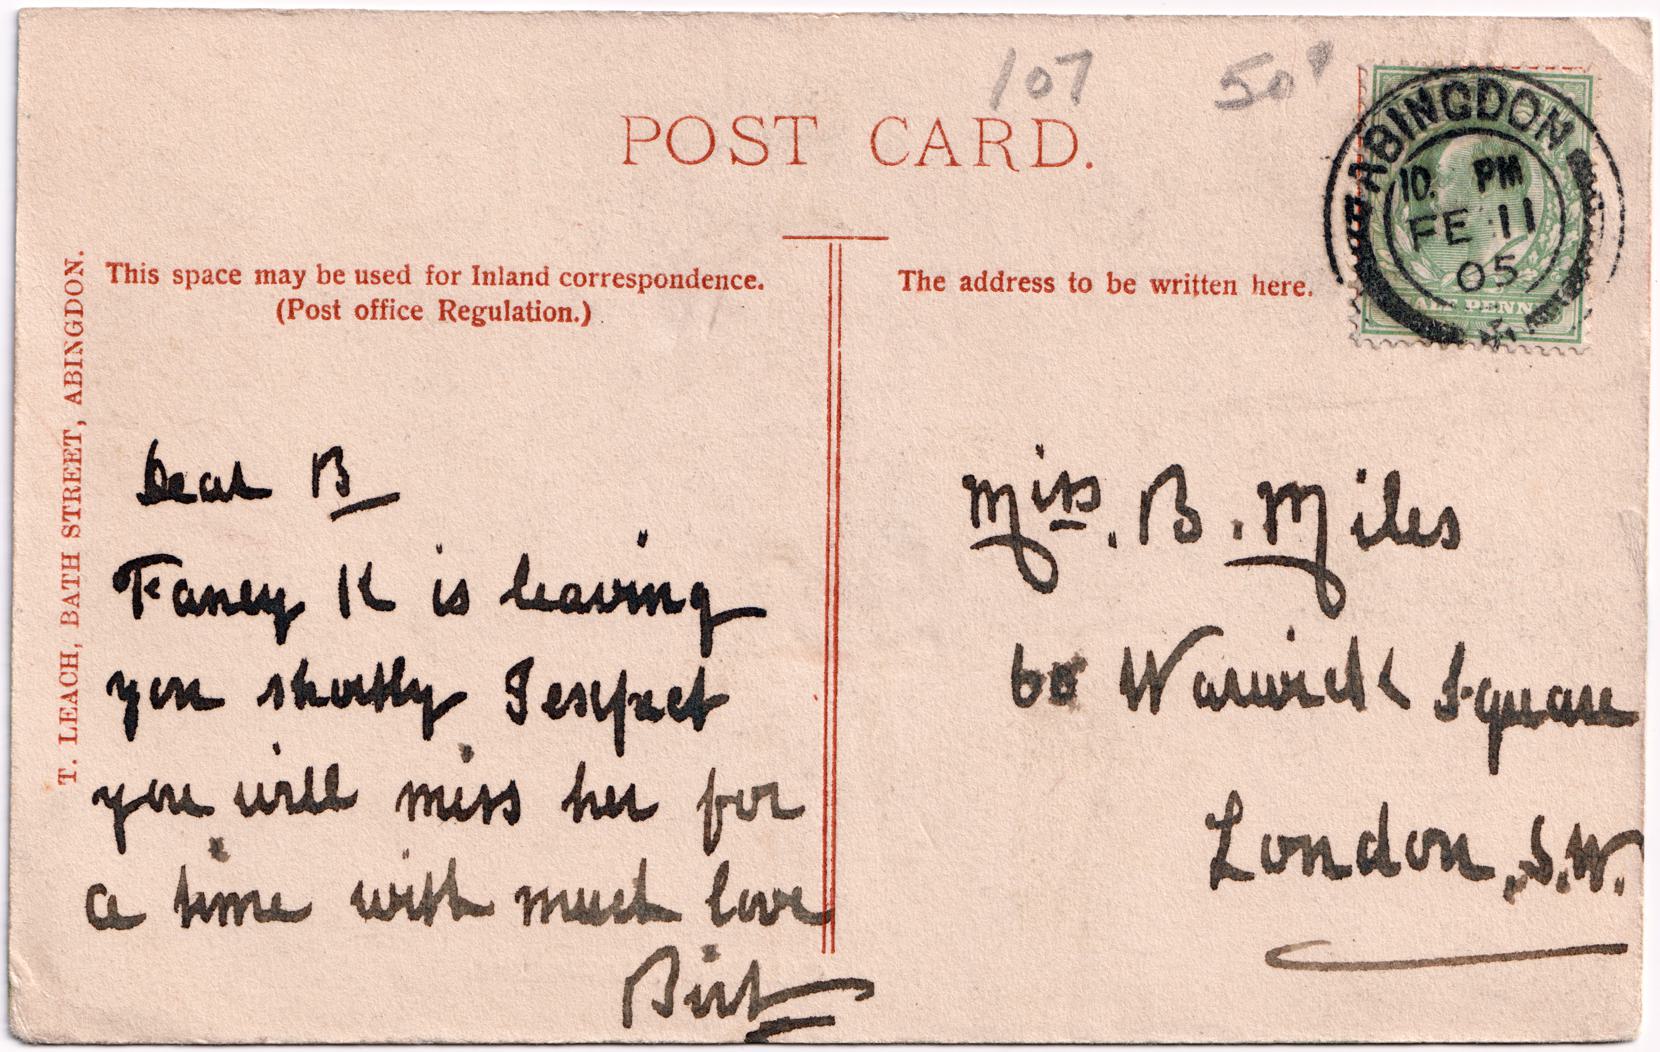 107
50
POST CARD.
ABINGDON
10. PM
FE 11
05
ALF PENN
This space may be used for Inland correspondence.
(Post office Regulation.)
The address to be written here.
T. LEACH, BATH STREET, ABINGDON.
Dear B
Fancy K is leaving
you shortly I expect
you will miss her for
a time with much love
Birt
Miss. B. Miles
60 Warwick Square
London, S.W.